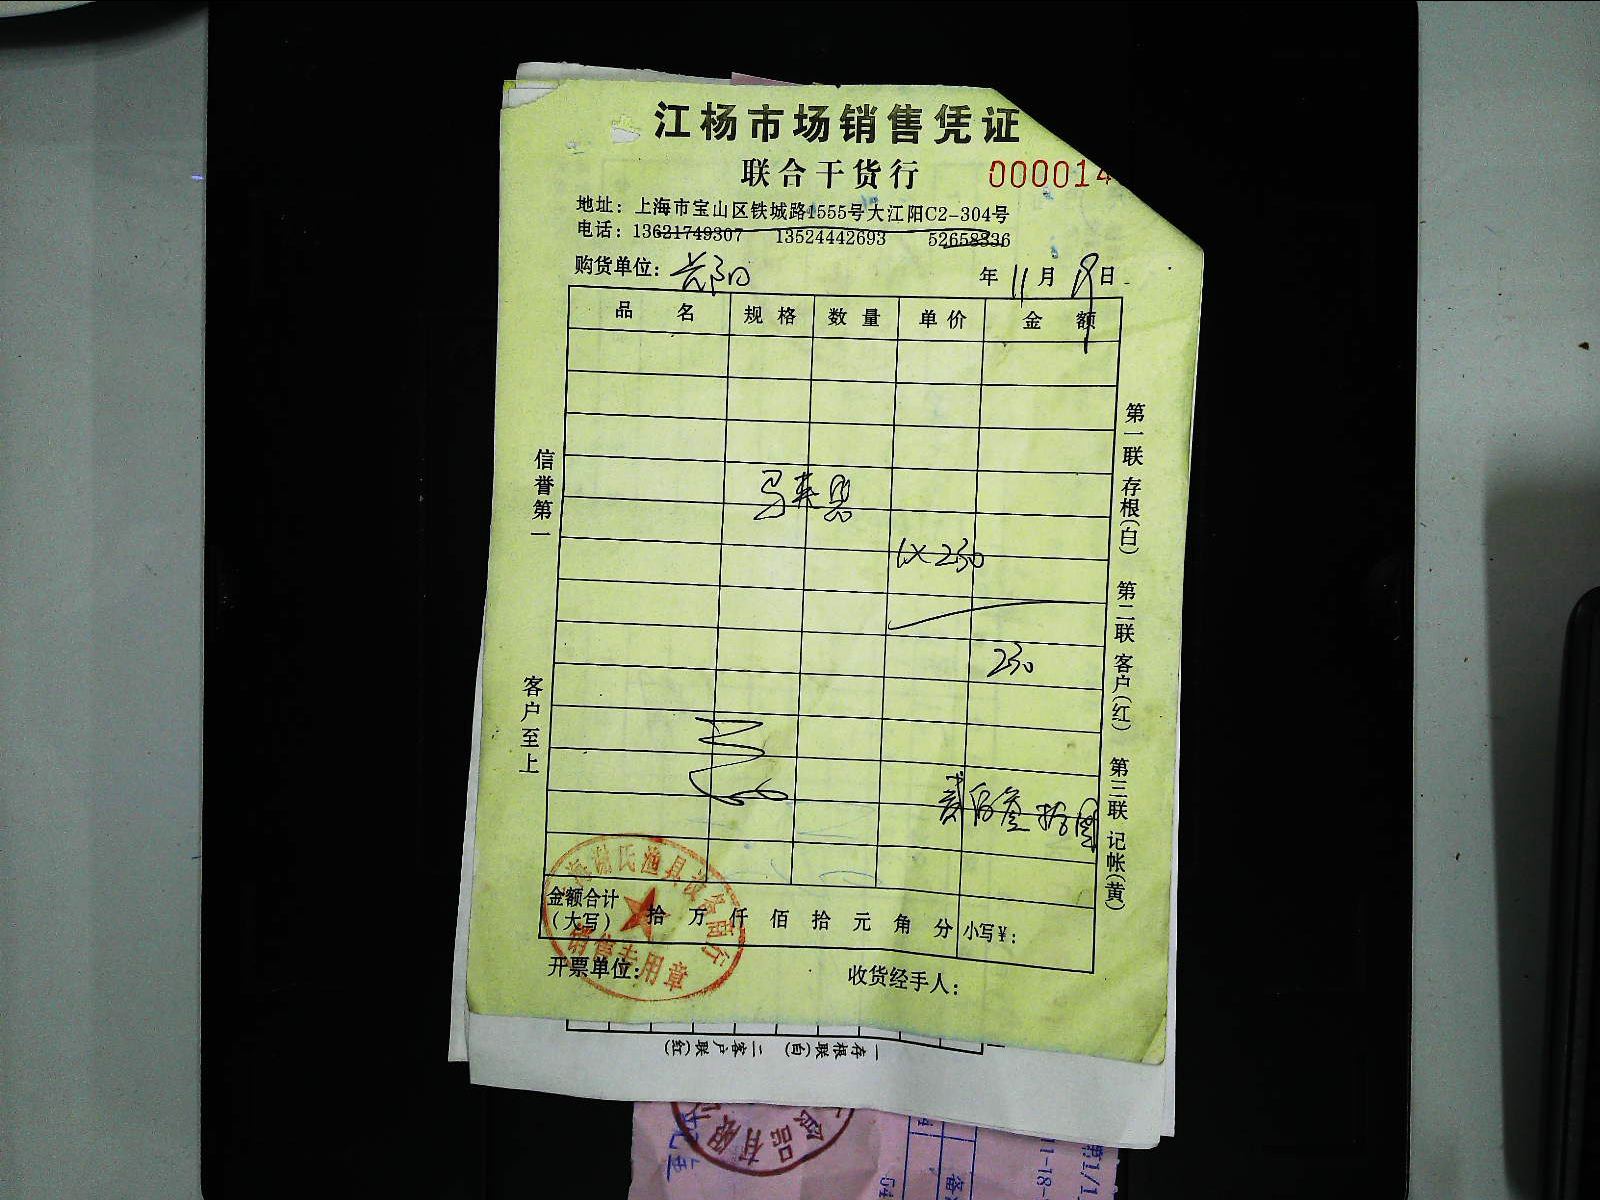 江杨市场销售凭证
联合干货行
000014
地址：上海市宝山区铁城路1555号大江阳C2-304号
电话：13621749307 13524442693 52658336
购货单位：
年 11 月 19 日
品 名 规格 数量 单价 金 额
1×230
230
贰佰叁拾圆
金额合计（大写） 拾 万 仟 佰 拾 元 角 分 小写￥：
开票单位： 收货经手人：
信誉第一 客户至上
第一联 存根（白） 第二联 客户（红） 第三联 记帐（黄）
海谢氏渔具设备商行
销售专用章
一存根联（白） 二客户联（红）
品有限